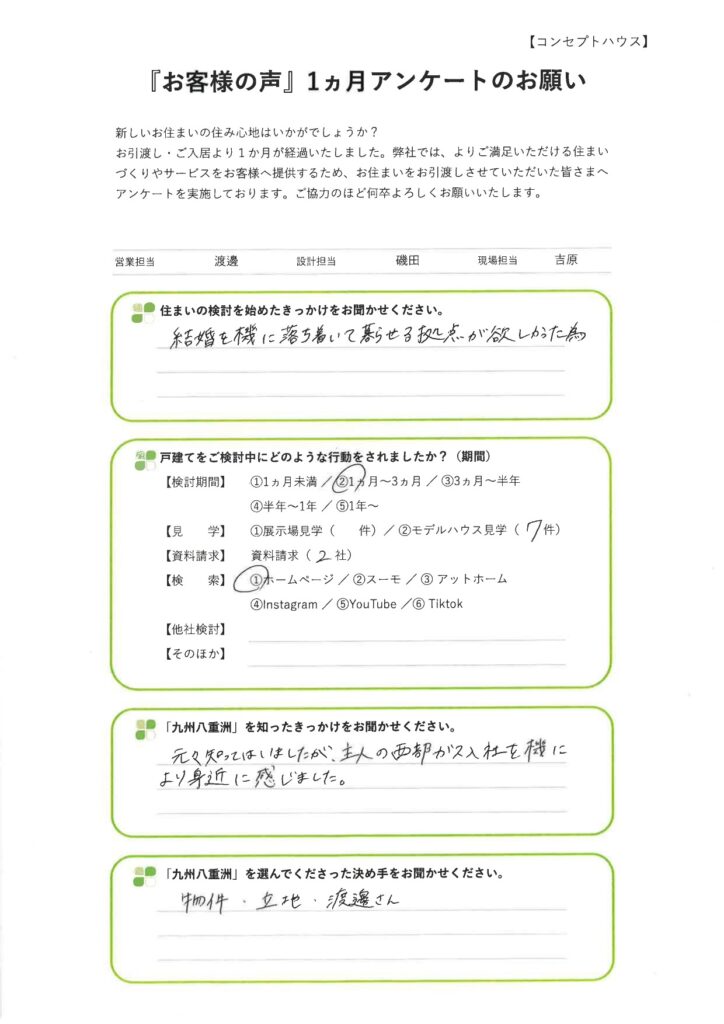 【コンセプトハウス】
『お客様の声』1ヵ月アンケートのお願い
新しいお住まいの住み心地はいかがでしょうか？
お引渡し・ご入居より１か月が経過いたしました。弊社では、よりご満足いただける住まい
づくりやサービスをお客様へ提供するため、お住まいをお引渡しさせていただいた皆さまへ
アンケートを実施しております。ご協力のほど何卒よろしくお願いいたします。
営業担当 渡邊 設計担当 磯田 現場担当 吉原
住まいの検討を始めたきっかけをお聞かせください。
結婚を機に落ち着いて暮らせる拠点が欲しかった為
戸建てをご検討中にどのような行動をされましたか？（期間）
【検討期間】 ①1ヵ月未満 ／ ②1ヵ月～3ヵ月 ／ ③3ヵ月～半年
④半年～1年 ／ ⑤1年～
【見　学】 ①展示場見学（　　件）／ ②モデルハウス見学（ 7件）
【資料請求】 資料請求（ 2 社）
【検　索】 ①ホームページ ／ ②スーモ ／ ③ アットホーム
④Instagram ／ ⑤YouTube ／⑥ Tiktok
【他社検討】
【そのほか】
「九州八重洲」を知ったきっかけをお聞かせください。
元々知ってはいましたが、主人の西部ガス入社を機に
より身近に感じました。
「九州八重洲」を選んでくださった決め手をお聞かせください。
物件・立地・渡邊さん